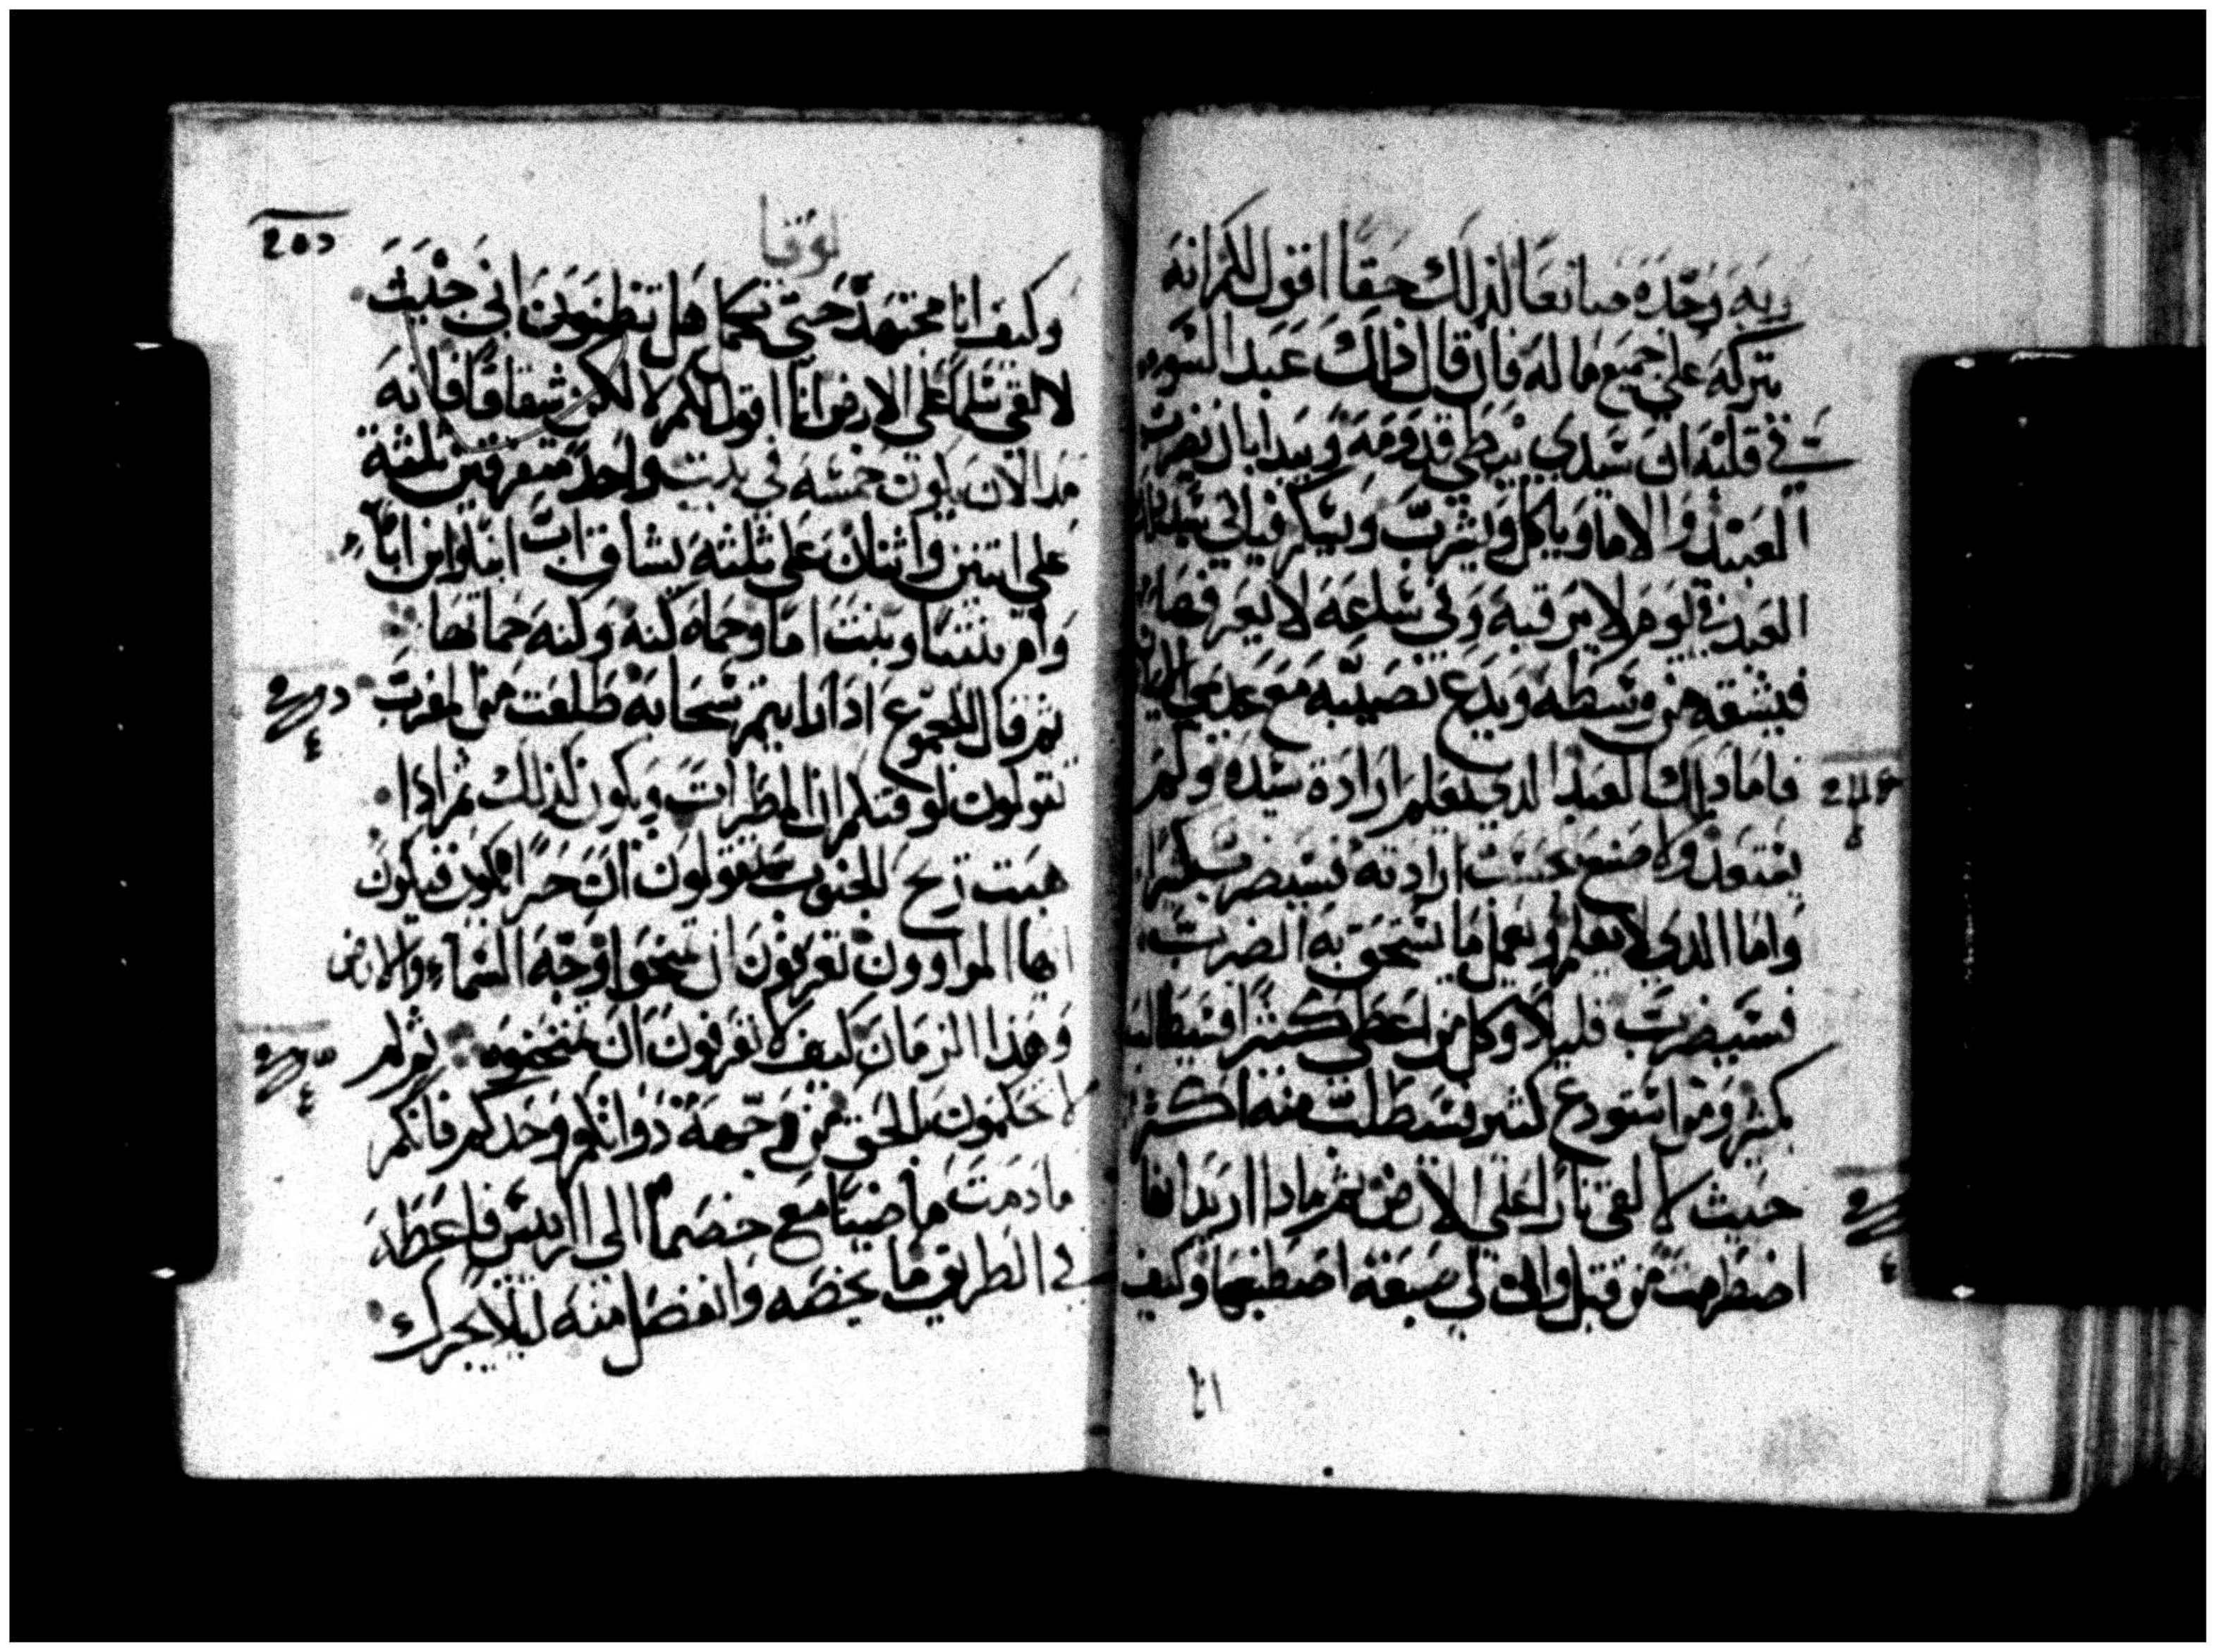 ربه وجده صانعا لذلك حقا اقول لكم انه
يتركه علي جميع ماله فان قال ذلك عبد السوء
في قلبه ان سيدي يبطي قدومه ويبدا بان يضرب
العبيد والاما وياكل ويشرب ويسكر فياتي سيد ذلك
العبد في يوم لا يرقبه وفي ساعه لا يعرفها
فيشقه من وسطه ويدع نصيبه مع
فاما ذلك العبد الذي يعلم ارادة سيده ولم
يستعد ولا صنع بحسب ارادته فسيضرب كثيرا
واما الذي لا يعلم ويعمل ما يستحق به الضرب
فسيضرب قليلا وكل من اعطي كثيرا فسيطالب
بكثير ومن استودع كثير فسيطلب منه اكثر
حيث لالقي نارا علي الارض ثم ماذا اريد انها
اضطرمت من قبل وان لي صبغة اصطبغها وكيف
٢١
لوقا
وكيف انا مجتهد حتي تكمل هل تظنون اني جيت
لالقي سلما علي الارض انا اقول لكم لا لكن شقاقا فانه
مند الان يكون خمسه في بيت واحد متفرقين ثلثة
علي اثنين واثنان علي ثلثة يشاق اب ابنا وابن ابا
وام بنتا وبنت اما وحماه كنه وكنه حماتها
ثم قال للجموع اذا رايتم سحابة طلعت من المغرب
تقولون لوقتكم ان المطر ات ويكون كذلك ثم اذا
هبت ريح الجنوب تقولون ان حرا يكون فيكون
ايها المراوون تعرفون ان تمتحنوا وجه السماء والارض
وهذا الزمان كيف لا تعرفون ان تمتحنوه ثم لم
لا تحكمون بالحق من جهة ذواتكم وحدكم فانكم
مادمت ماضيا مع خصمك الي الريس فاعطه
في الطريق ما يخصه وانفصل منه ليلا يجرك